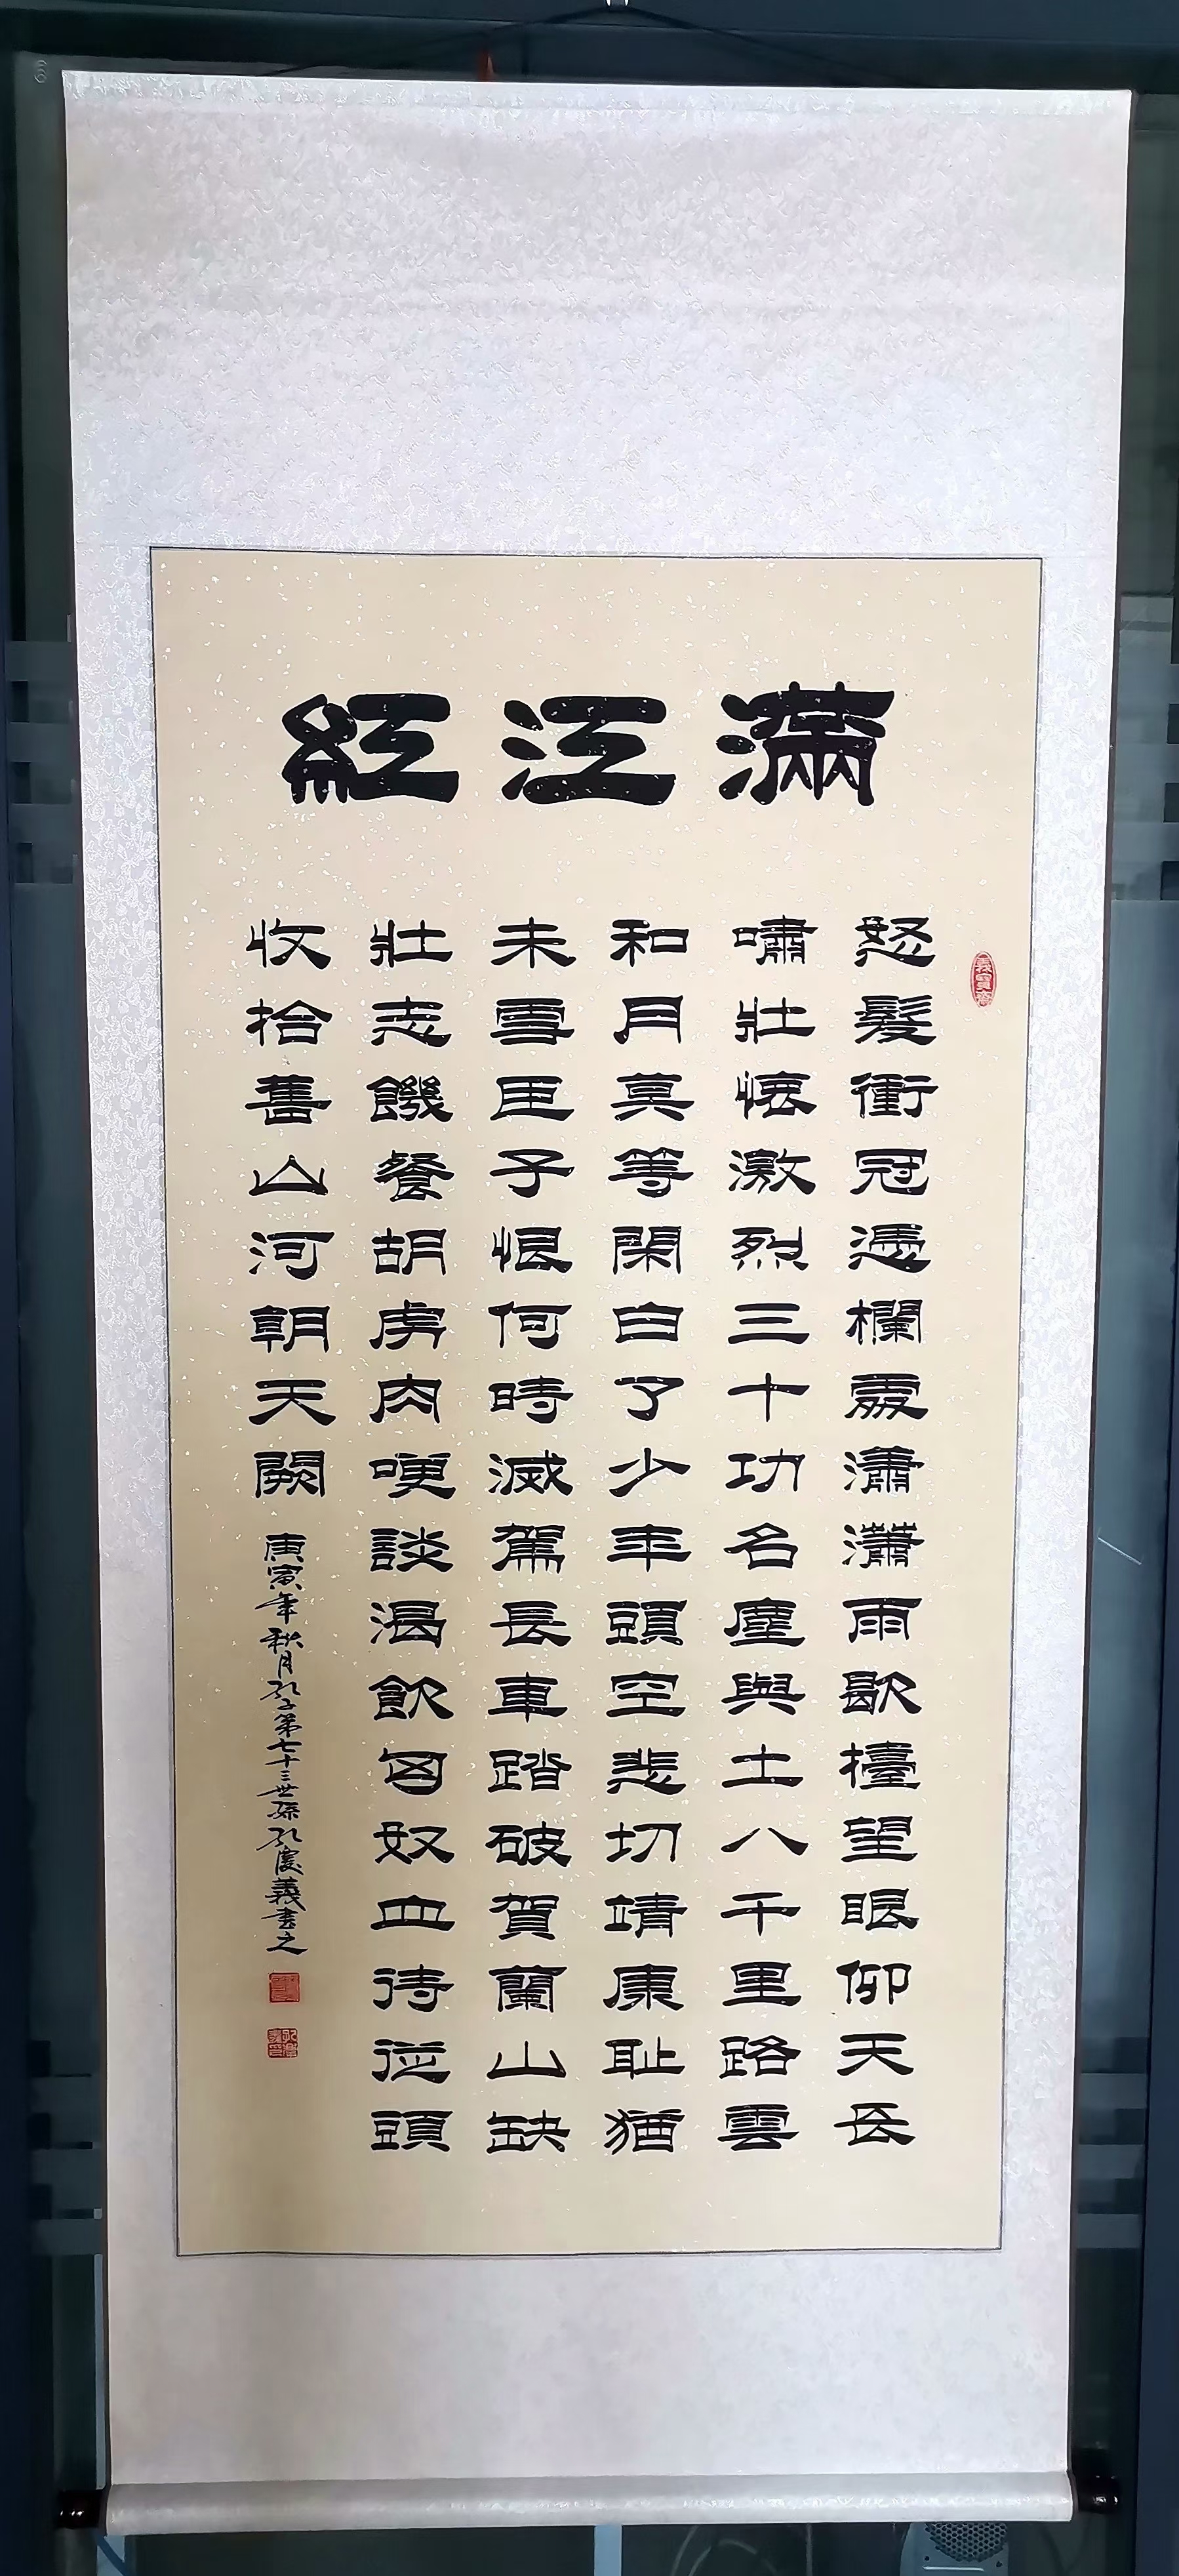 滿江紅
怒髮衝冠憑欄處瀟瀟雨歇擡望眼仰天長
嘯壯懷激烈三十功名塵與土八千里路雲
和月莫等閑白了少年頭空悲切靖康耻猶
未雪臣子恨何時滅駕長車踏破賀蘭山缺
壯志饑餐胡虜肉哽談渴飲匈奴血待從頭
收拾舊山河朝天闕
庚寅年秋月孔子第七十三世孫孔慶義書之